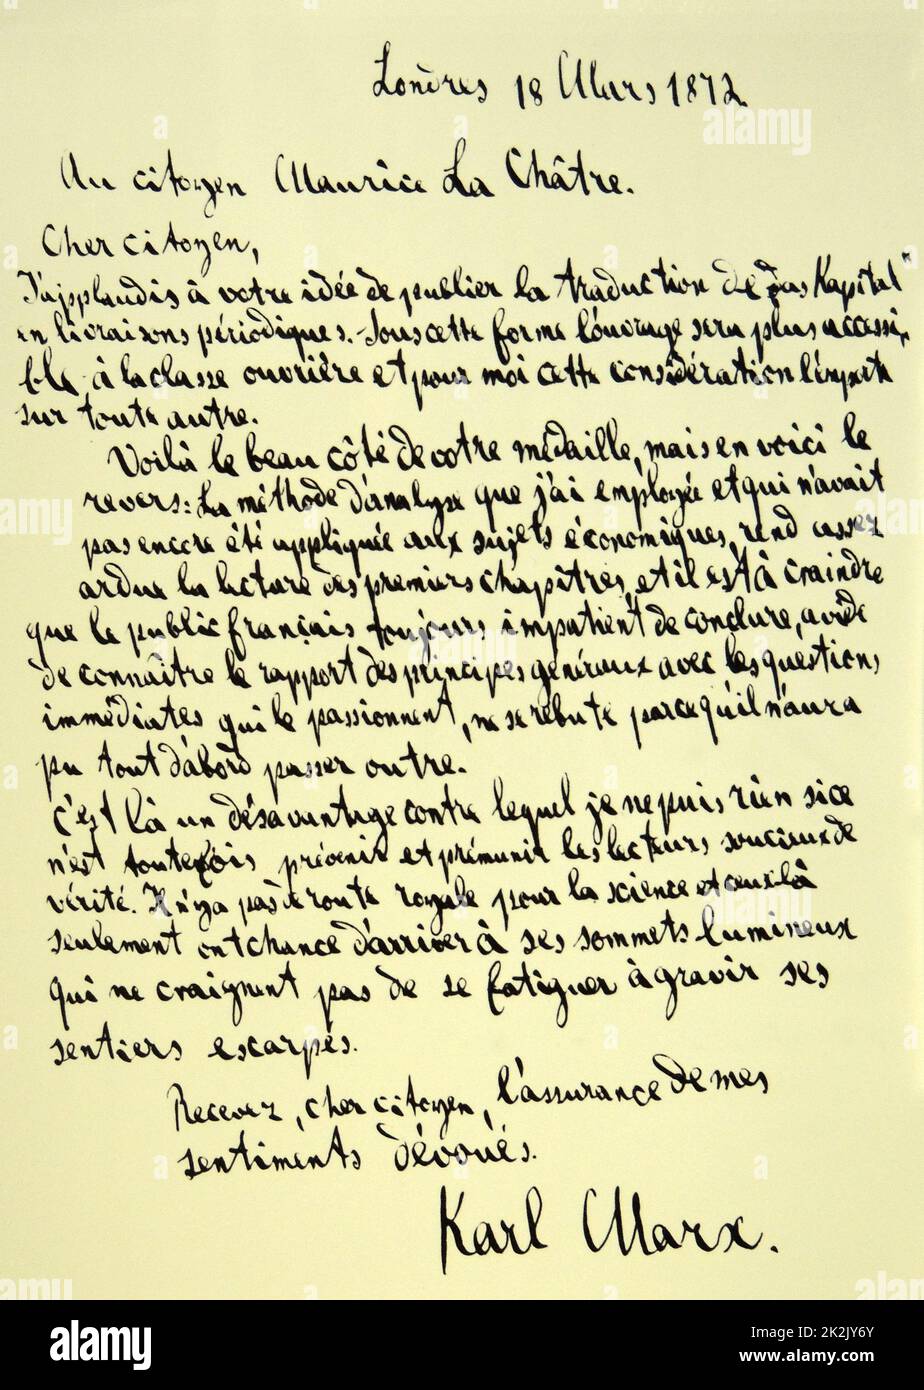 Londres 18 Mars 1872
Au citoyen Maurice La Châtre.
Cher citoyen,
J'applaudis à votre idée de publier la traduction de "Das Kapital"
en livraisons périodiques. Sous cette forme l'ouvrage sera plus accessi,
ble à la classe ouvrière et pour moi cette considération l'emporte
sur toute autre.
Voilà le beau côté de votre médaille, mais en voici le
revers: La méthode d'analyse que j'ai employée et qui n'avait
pas encore été appliquée aux sujets économiques, rend assez
ardue la lecture des premiers chapîtres, et il est à craindre
que le public français toujours impatient de conclure, avide
de connaître le rapport des principes généraux avec les questions
immédiates qui le passionnent, ne se rebute parcequ'il n'aura
pu tout d'abord passer outre.
C'est là un désavantage contre lequel je ne puis rien si ce
n'est toutefois prévenir et prémunir les lecteurs soucieux de
vérité. Il n'y a pas de route royale pour la science et ceux-là
seulement ont chance d'arriver à ses sommets lumineux
qui ne craignent pas de se fatiguer à gravir ses
sentiers escarpés.
Recevez, cher citoyen, l'assurance de mes
sentiments dévoués.
Karl Marx.
alamy
Image ID: 2K2JY6Y
www.alamy.com